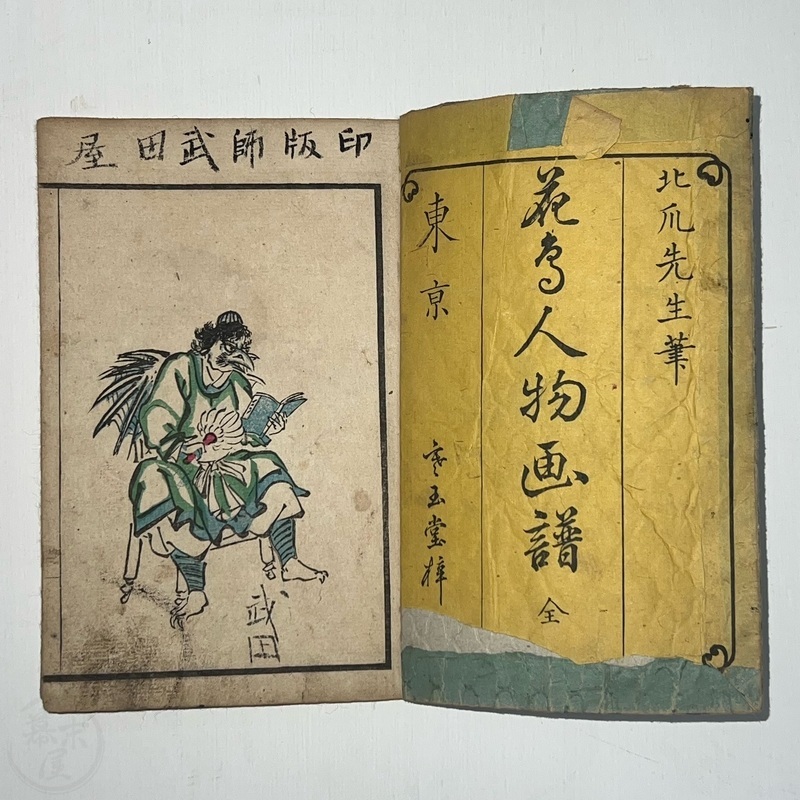 北爪先生筆
花鳥人物画譜 全
東亰
玉堂梓
印版師武田屋
武田
幕末屋